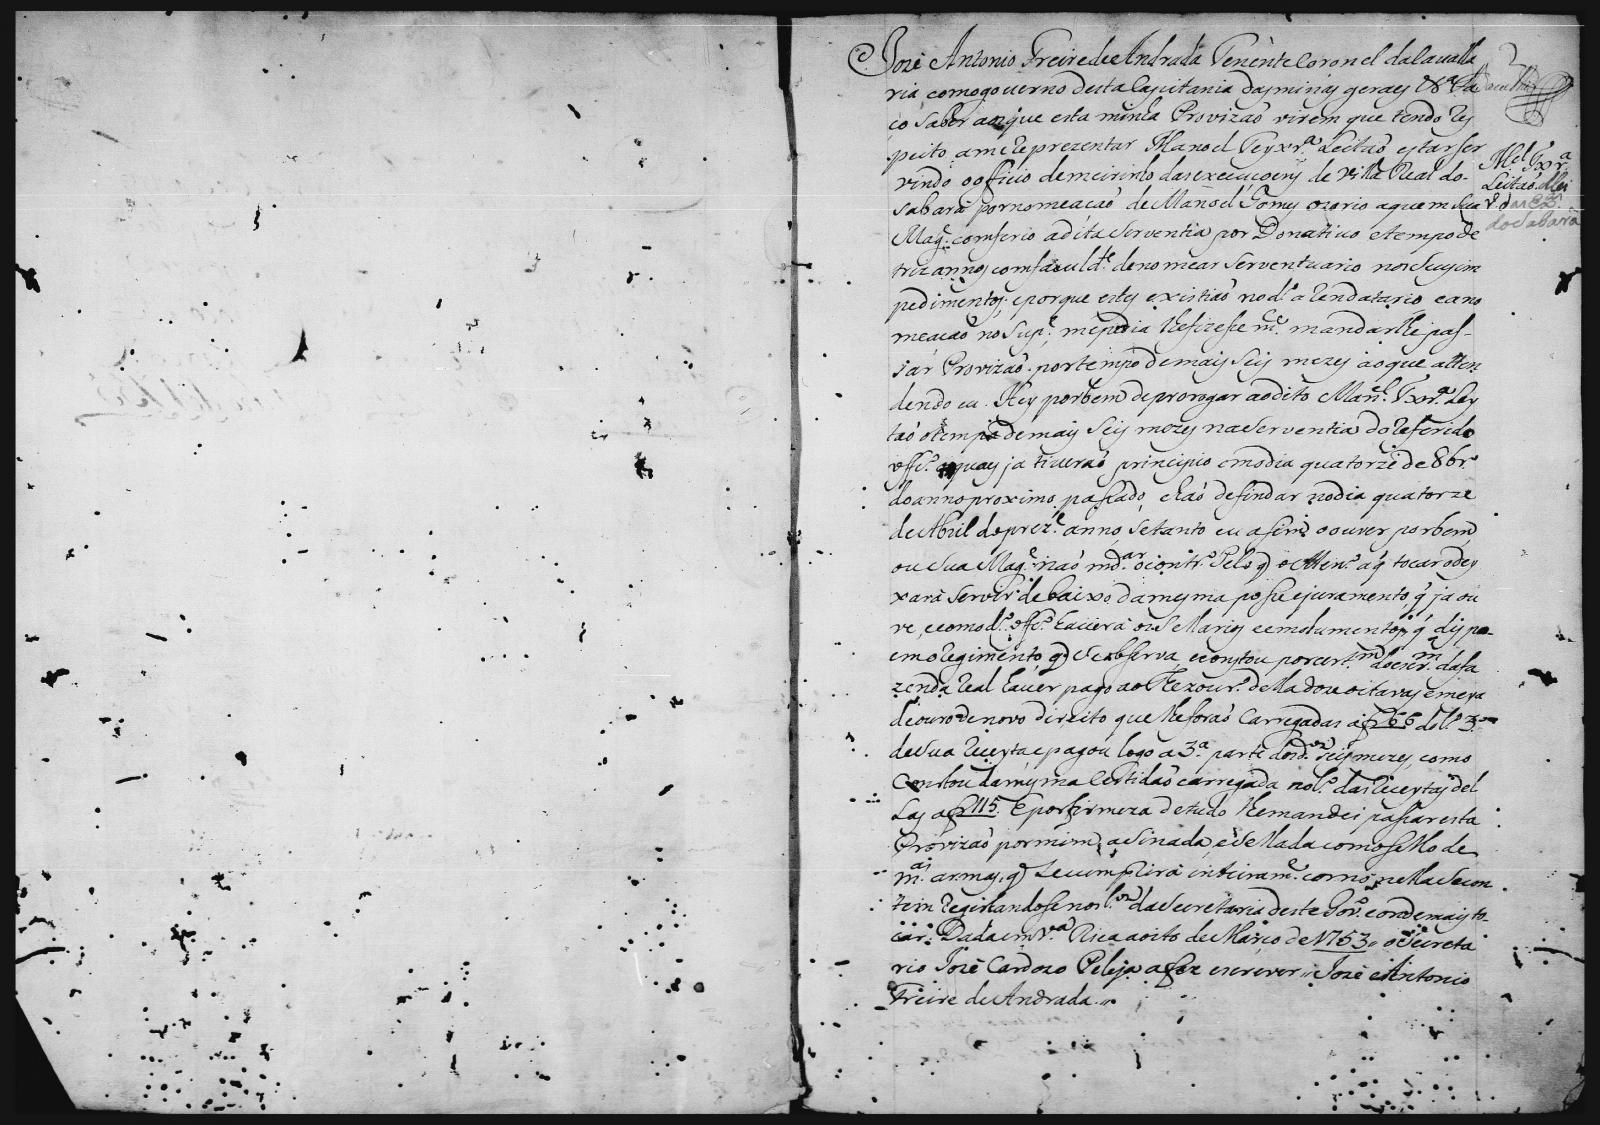 Jozè Antonio Freire de Andrada Tenènte Coronel da Cavalla
ria comogoverno desta Capitania dasminas geraes &ª Fa
ço saber aosque esta minha Provizaõ virem que tendo res
peito ame Reprezentar Manoel Teyxrª Leitaõ estarser
vindo oofficio demeirinho dasexecuçoens de Villa Real do
Sabarà pornomeacaõ de Manoel Gomes ozorio aquem Sua
Magᵉ. comferio adita Serventia por Donativo etempode
trez annos comfaculdᵉ. denomear Serventuario nosSeusim
pedimentos; eporque estes existiaõ nodº aRendatario eano
meacaõ no Supᵉ, mepedia lhefizesse mᶜᵉ mandarlhe pas-
sar Provizaõ portempo demais Seis mezes aoque atten
dendo eu. Hey porbem deprorogar aodito Manᵉˡ. Txrª Ley
taõ otempo demais Seis mezes naServentia doReferido
offº. osquaes ja tiveraõ principio emodia quatorze de 8brº
doanno proximo passado, ehaõ defindar nodia quatorze
de Abril doprezᵉ anno, Setanto eu assim oouver porbem
ou Sua Magᵉ naõ mdᵃʳ ocontrº Pelo q̃ oMenº aq̃ tocar odey
xarà Servir debaixo damesma posse ejuramento q̃ ja ou
ve, ecomodº offº. haverà osSellarios eemolumentos q̃ dispo-
emoRegimento, q̃ Seobserva, econstou porcertᵃᵐ doescrᵃᵐ dafa
zenda Real haver pago aoThezourº. della doze oitavas emeya
deouro denovo direito que lheforaõ Carregadas a f 66 dolº 3º
deSua Receyta epagou logo a 3ª parte dosdᵒˢ Seis mezes, como
Constou damesma Certidaõ carregada nolº. dasReceytas del
las a f 115. Eporfirmeza detudo lhemandei passaresta
Provizaõ pormim aSinada, eSellada comosello de
mᵃˢ armas, q̃ Secumprirà inteiramᵉ. como nellaSecon
tem Registandosenos lᵒˢ daSecretaria deste Govº. eondemais to
car. Dada em Vª Rica aoito de Março de 1753 // oSecreta
rio Jozè Cardozo Peleja afez escrever // Jozè Antonio
Freire de Andrada //.
2
Mᵉˡ Txrª
Leitaõ Mei
doSabarà